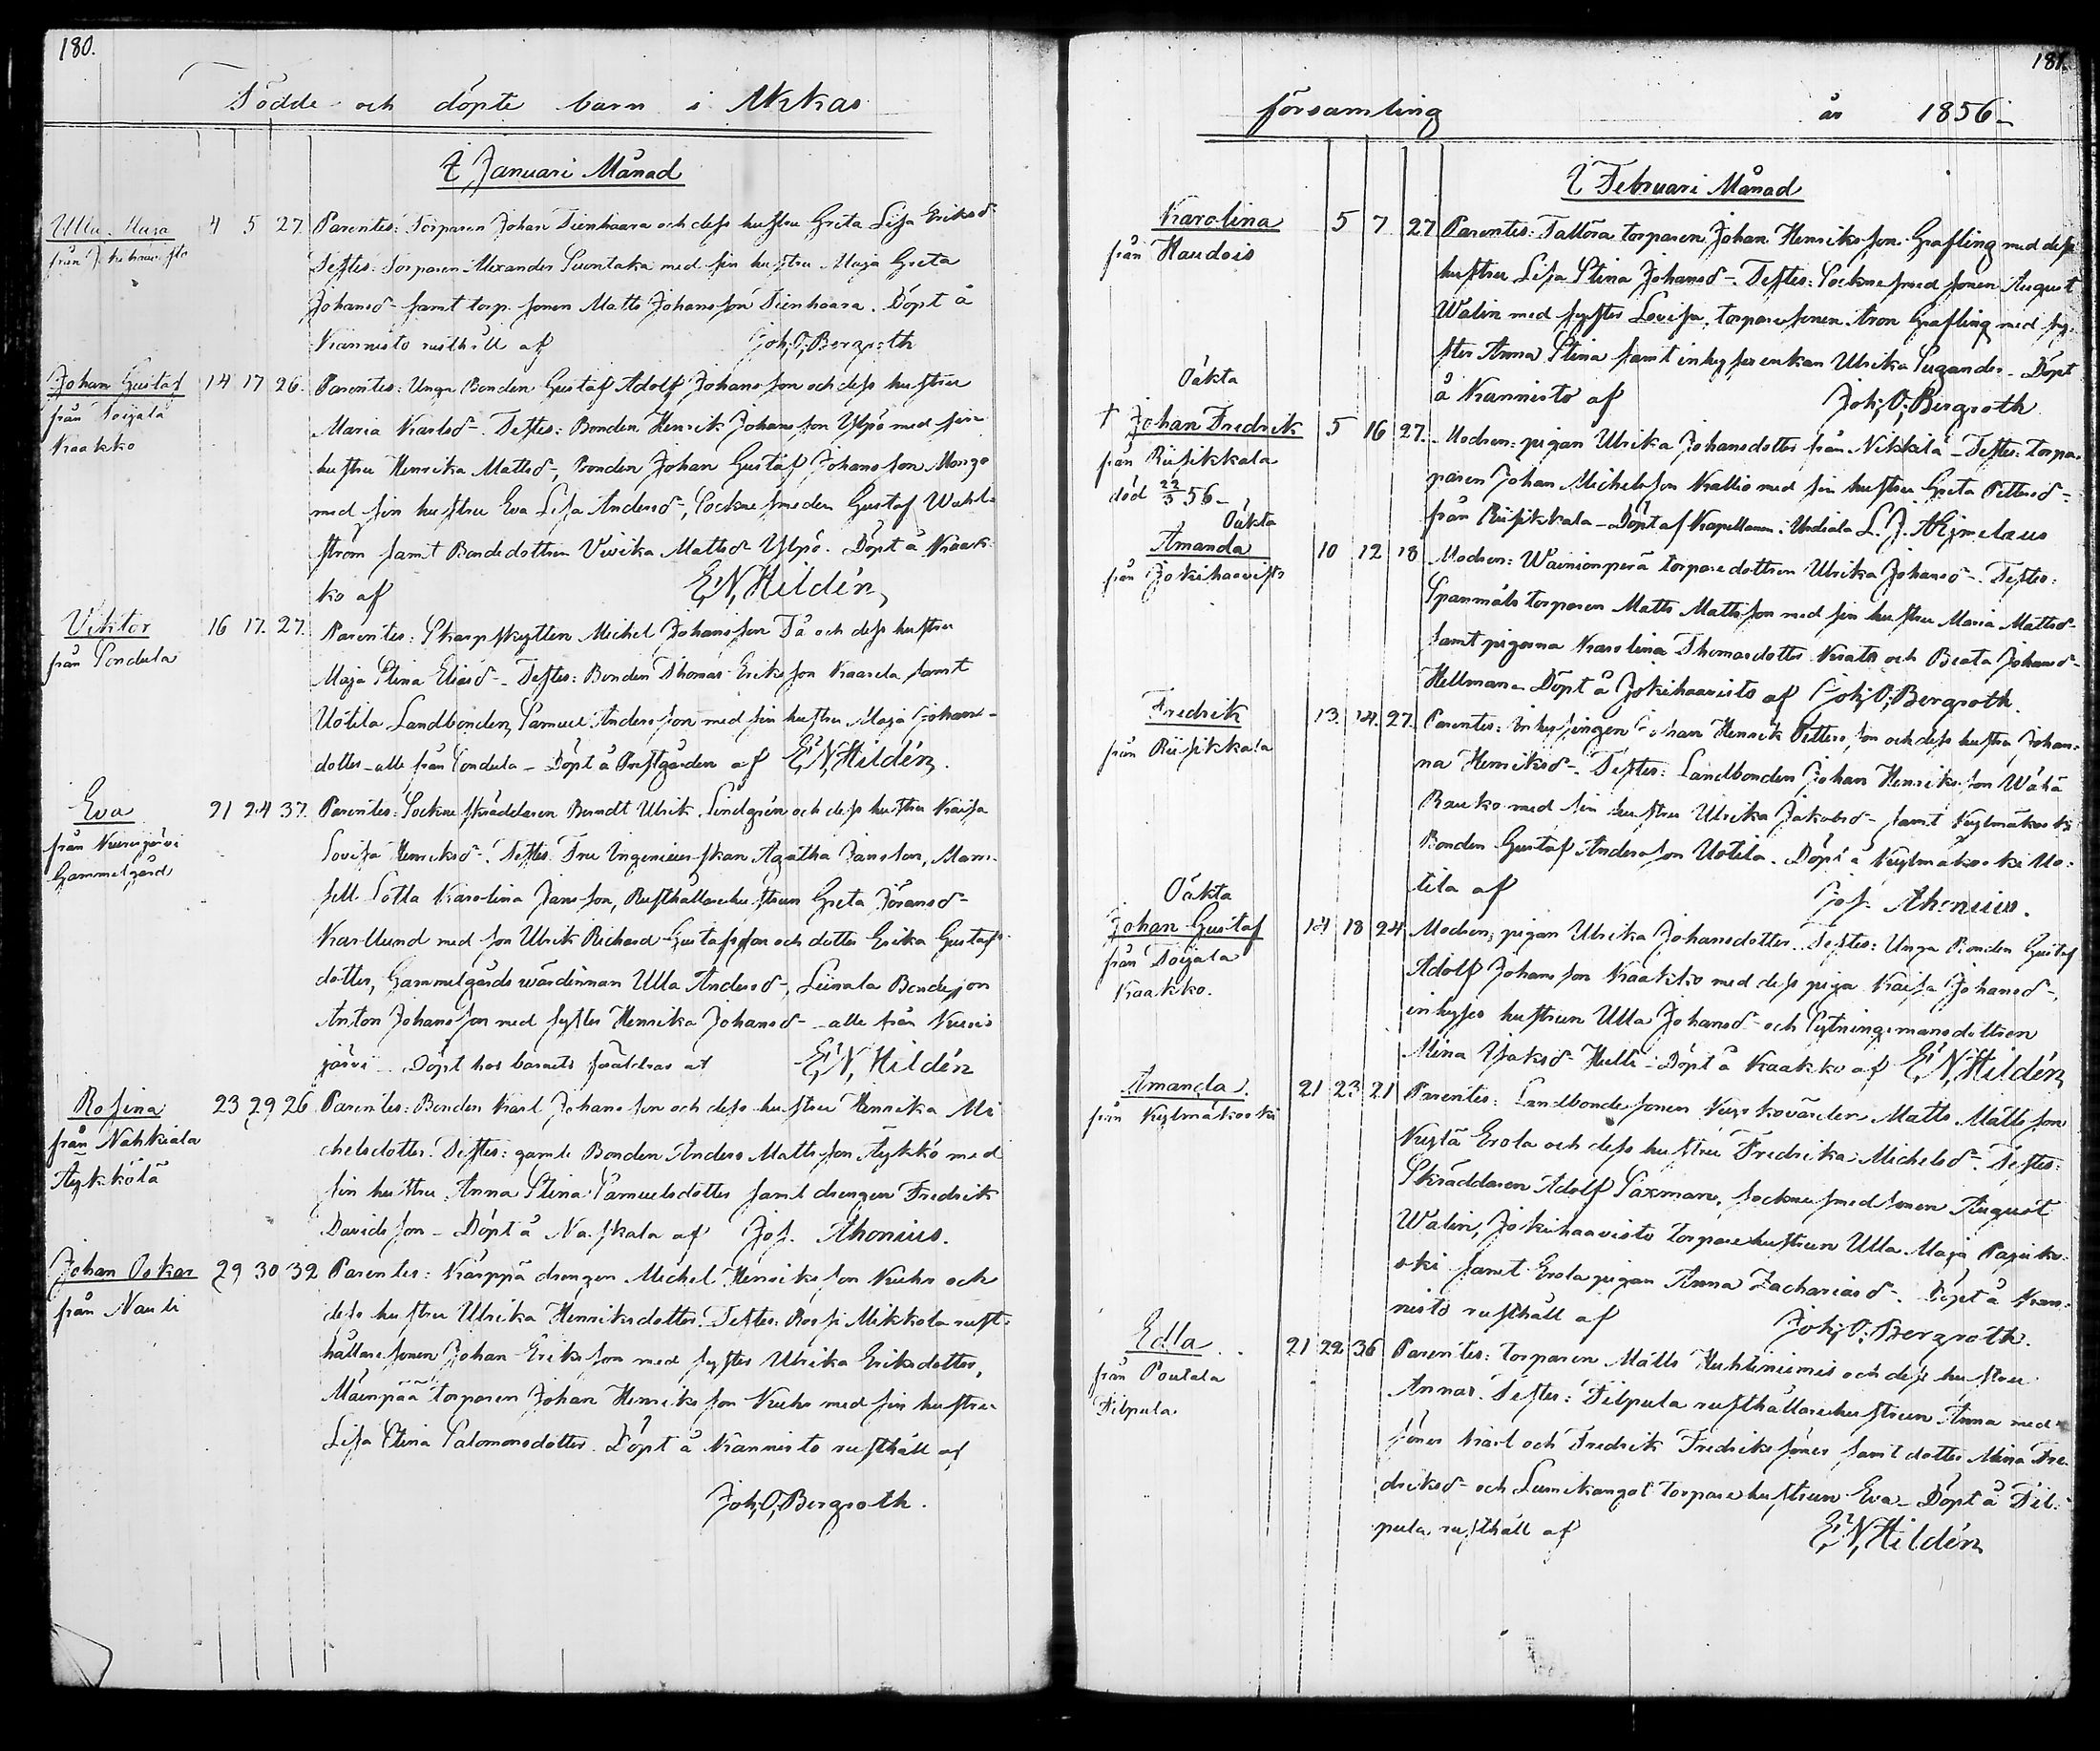 180.
Födde och döpte barn i Akkas
I Januari Månad
Ulla Maja
från Jokihaavisto
4 5 27 Parentes: Torparen Johan Tienhaara och dess hustru Greta Lisa Eriksd-
Testes: Torparen Alexander Suontaka med sin hustru Maja Greta
Johansd- samt torp. sonen Matts Johansson Tienhaara. Döpt å
Kannisto rusthåll af Joh. O. Bergroth
Johan Gustaf
från Toijala
Kraakko
14 17 26. Parentes: Unga Bonden Gustaf Adolf Johansson och dess hustru
Maria Karlsd-. Testes: Bonden Henrik Johansson Ylpö med sin
hustru Henrika Mattsd-, Bonden Johan Gustaf Johansson
med sin hustru Eva Lisa Andersd-, Sockne smeden Gustaf Wahl-
ström samt Bondedottren Vivika Mattsd- Ylpö. Döpt å Kraak-
ko af E. N. Hildén
Viktor
från Sondula
16 17. 27. Parentes: Skarpskytten Michel Johansson Tå och dess hustru
Maja Stina Eliasd-. Testes: Bonden Thomas Eriksson Kaarela samt
Uotila Landbonden Samuel Andersson med sin hustru Maja Johans-
dotter - alle från Sondula - Döpt å Prestgården af E. N. Hildén.
Eva
från Kurisjärvi
Gammelgård
21 24 37. Parentes: Sockne skräddaren Berndt Ulrik Lindgrén och dess hustru Kaisa
Lovisa Henriksd-. Testes: Fru Ingenieurskan Agatha Jansson, Mam-
sell Lotta Karolina Jansson, Rusthållarehustrun Greta Göransd-
Karllund med son Ulrik Richard Gustafsson och dotter Erika Gustafs-
dotter, Gammelgårds wärdinnan Ulla Andersd-, Liinala Bondeson
Anton Johansson med syster Henrika Johansd- - alle från Kuris
järvi - Döpt hos barnets föräldrar af E. N. Hildén
Rosina
från Nahkiala
Äykkölä
23 29 26 Parentes: Bonden Karl Johansson och dess hustru Henrika Mi
chelsdotter. Testes: gamle Bonden Anders Mattsson Äykkö med
sin hustru Anna Stina Samuelsdotter samt drengen Fredrik
Davidsson - Döpt å af Jos. Ahonius.
Johan Oskar
från Nauli
29 30 32 Parentes: Kärppä drengen Michel Henriksson Kuhs och
dess hustru Ulrika Henriksdotter. Testes: Rossi Mikkola rust-
hållaresonen Johan Eriksson med syster Ulrika Eriksdotter,
Mäenpää torparen Johan Henriksson Kuhs med sin hustru
Lisa Stina Salomonsdotter. Döpt å Kannisto rusthåll af
Joh. O. Bergroth.
181.
församling år 1856.
I Februari Månad
Karolina
från Haudois
5 7 27 Parentes: Tallöra torparen Johan Henriksson Grafling med dess
hustru Lisa Stina Johansd-. Testes: Sockne smed sonen August
Walin med syster Lovisa, torparesonen Aron Grafling med sy-
ster Anna Stina samt inhyses enkan Ulrika Sugander. Döpt
å Kannisto af Joh. O. Bergroth
Oäkta
† Johan Fredrik
från Riisikkala
död 22/3 56-
5 16 27. Modren: pigan Ulrika Johansdotter från Nikkilä - Testes: torpa-
paren Johan Michelsson Kallio med sin hustru Greta Pettersd-
från Riisikkala - Döpt af Kapellanen i Urdiala L. J. Ahjmelaus
Oäkta
Amanda
från Jokihaavisto
10 12 18 Modren: Wäinionperä torparedottren Ulrika Johansd-. Testes:
Spanmåls torparen Matts Mattsson med sin hustru Maria Mattsd-
samt pigorna Karolina Thomasdotter Krats och Beata Johansd-
Hellman - Döpt å Jokihaavisto af Joh. O. Bergroth.
Fredrik
från Riisikkala
13. 14. 27. Parentes: Inhysingen Johan Henrik Pettersson och dess hustru Johan-
na Henriksd-. Testes: Landbonden Johan Henriksson Wähä
Rauko med sin hustru Ulrika Jakobsd- samt Kylmäkoski
Bonden Gustaf Andersson Uotila. Döpt å Kylmäkoski Uo-
tila af Jos. Ahonius.
Oäkta
Johan Gustaf
från Toijala
Kraakko.
14 18 24 Modren, pigan Ulrika Johansdotter. Testes: Unga Bonden Gustaf
Adolf Johansson Kraakko med dess piga Kaisa Johansd-,
inhyses hustrun Ulla Johansd- och Sytningsmansdottren
Mina Isaksd- Hulli - Döpt å Kraakko af E. N. Hildén
Amanda.
från Kylmäkoski
21 23 21 Parentes: Landbondesonen Kyrkovärden Matts Mattsson
Kuytä Erola och dess hustru Fredrika Michelsd-. Testes:
Skräddaren Adolf Saxman, sockne smedsonen August
Walin, Jokihaavisto torparehustrun Ulla Maja Pajuko-
ski samt Erola pigan Anna Zachariasd-. Döpt å Kan-
nisto rusthåll af Joh. O. Bergroth.
Edla
från Poutala
Filpula
21 22 36 Parentes: torparen Matts Huhtiniemis och dess hustru
Annas. Testes: Filpula rusthållarehustrun Anna med
söner Karl och Fredrik Fredrikssöner samt dotter Mina Fre-
driksd- och Lumikangas torparehustrun Eva - Döpt å Fil-
pula rusthåll af E. N. Hildén